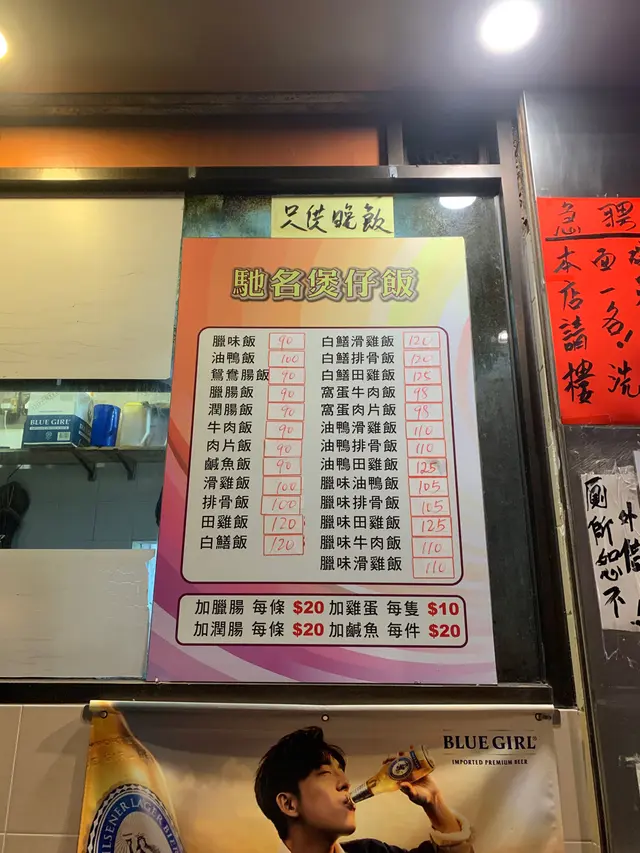 只供晚飯
馳名煲仔飯
臘味飯 90
油鴨飯 100
鴛鴦腸飯 90
臘腸飯 90
潤腸飯 90
牛肉飯 90
肉片飯 90
鹹魚飯 90
滑雞飯 100
排骨飯 100
田雞飯 120
白鱔飯 120
白鱔滑雞飯 120
白鱔排骨飯 120
白鱔田雞飯 125
窩蛋牛肉飯 98
窩蛋肉片飯 98
油鴨滑雞飯 110
油鴨排骨飯 110
油鴨田雞飯 125
臘味油鴨飯 105
臘味排骨飯 105
臘味田雞飯 125
臘味牛肉飯 110
臘味滑雞飯 110
加臘腸 每條 $20 加雞蛋 每隻 $10
加潤腸 每條 $20 加鹹魚 每件 $20
急聘
本店請樓
面一名！
洗
廁所如
外
不
BLUE GIRL
BLUE GIRL
IMPORTED PREMIUM BEER
PILSENER LAGER BIER